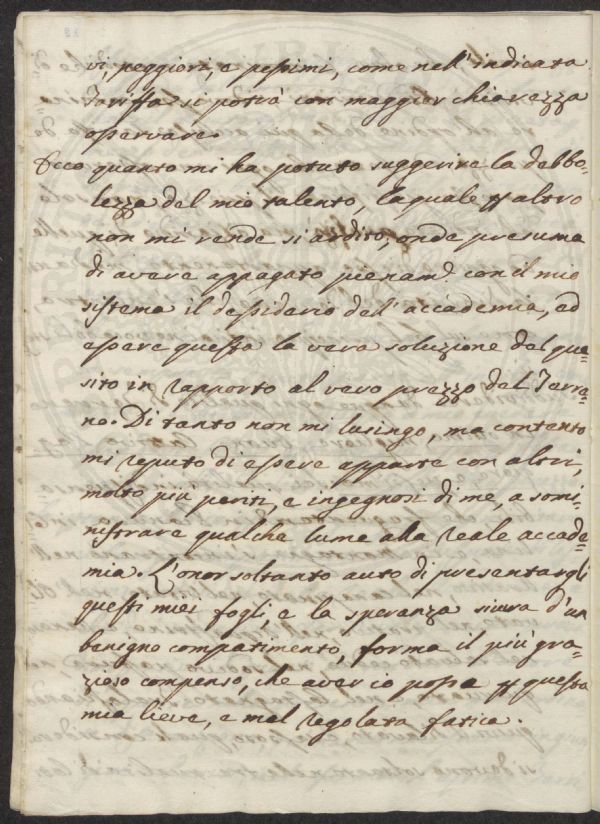 vi, peggiori, e pessimi, come nell'indicata
Tariffa si potrà con maggior chiarezza
osservare.
Ecco quanto mi ha potuto suggerire la debbo-
lezza del mio talento, la quale per altro
non mi rende si ardito, onde presuma
di avere appagato pienam.e con il mio
sistema il desiderio del'accademia, ed
essere questa la vera soluzione del que-
sito in rapporto al vero prezzo del Terre-
no. Di tanto non mi lusingo, ma contento
mi reputo di essere apparte con altri,
molto più periti, e ingegnosi di me, a somi-
nistrare qualche lume alla reale accade-
mia. L'onor soltanto auto di presentargli
questi miei fogli, e la speranza sicura d'un
benigno compatimento, forma il più gra-
zioso compenso, che aver io possa per questa
mia lieve, e mal regolata fatica.